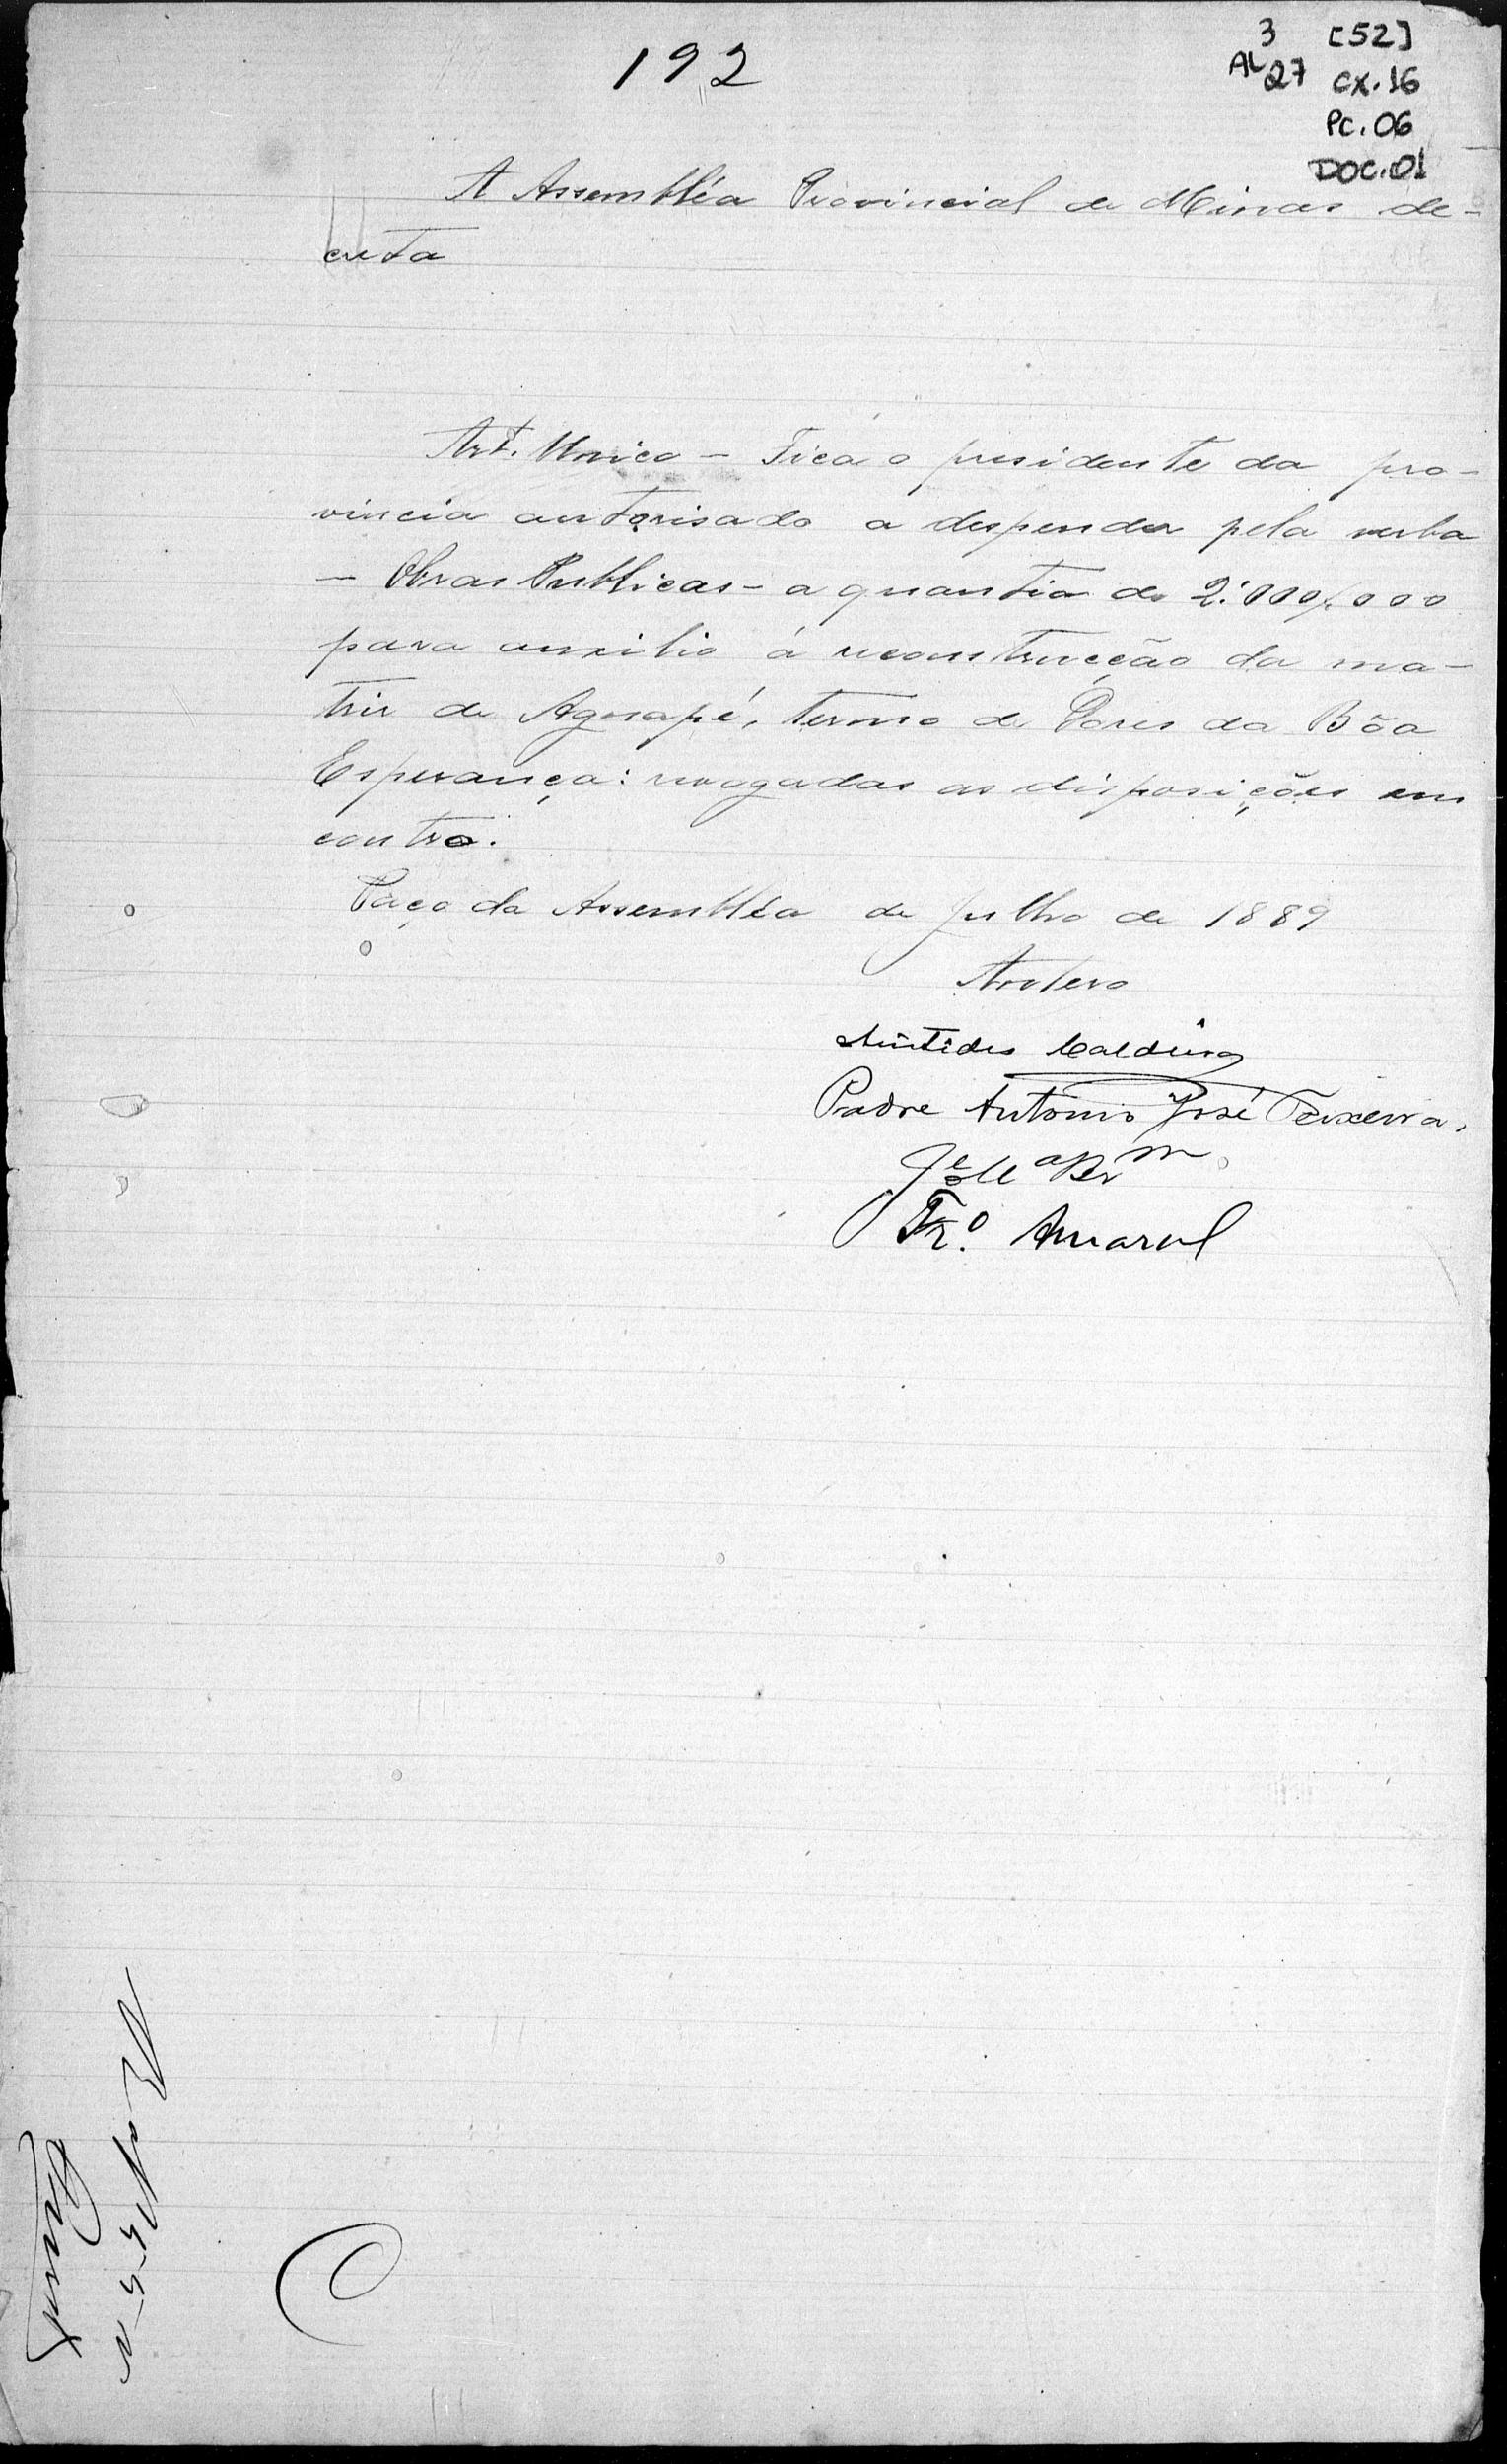 192
3 [52]
AL 27 CX.16
PC.06
DOC.01
A Assembléa Provincial de Minas de-
creta
Art. Unico - Fica o presidente da pro-
vincia autorisado a despender pela verba
- Obras Publicas - a quantia de 2:000$000
para auxilio á reconstrucção da ma-
triz de Aguapé, termo de Dores da Bôa
Esperança: revogadas as disposições em
contro.
Paço da Assembléa de Julho de 1889
Antero
Padre Antonio José Teixeira.
Fr.º Amaral